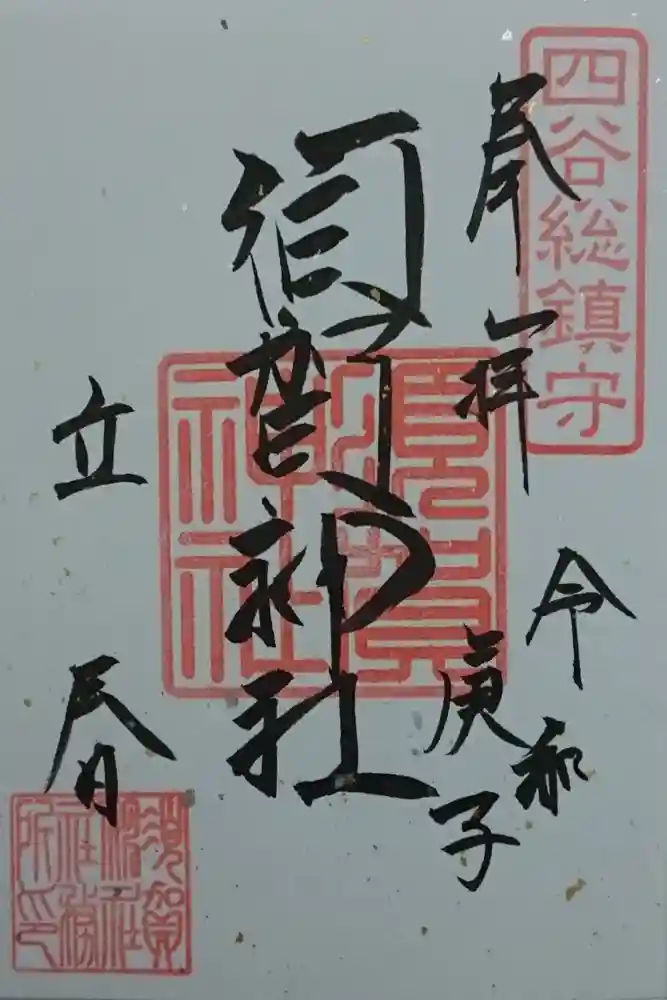 四谷総鎮守
奉拝
令和
庚子
須賀神社
須賀
神社
立春
須賀
神社
社務
所印